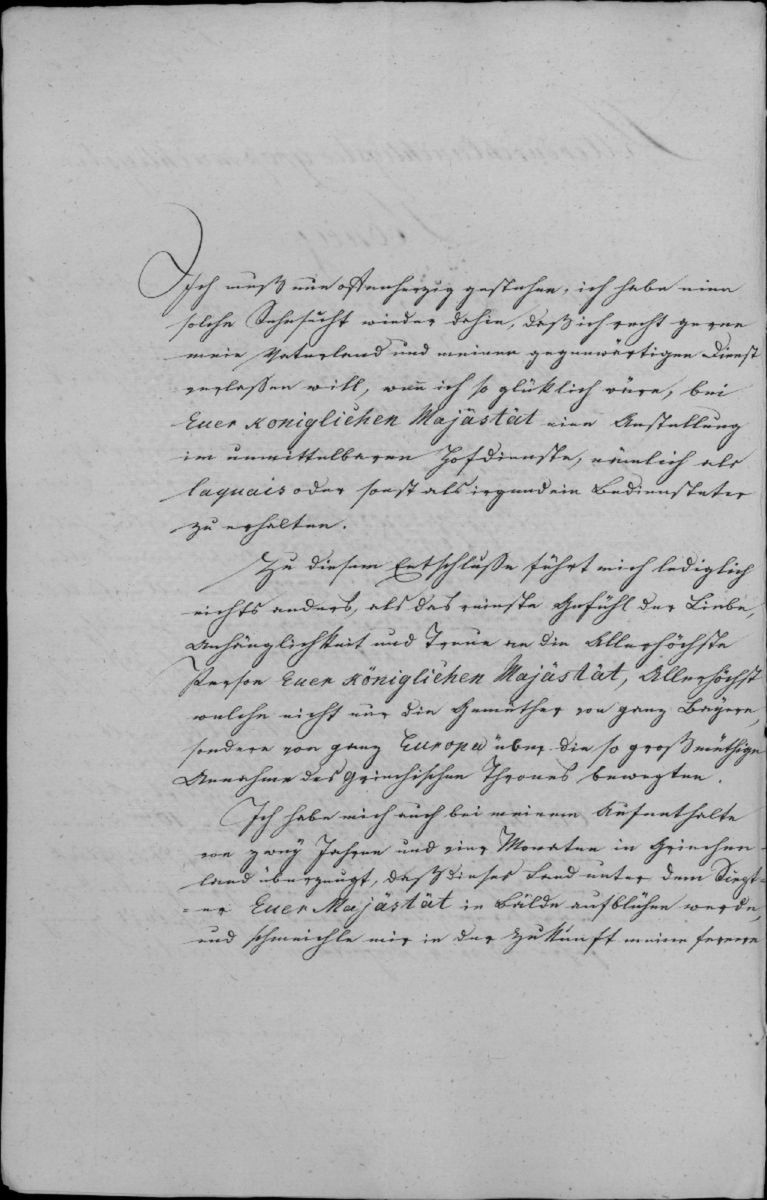 Ich muß nun offenherzig gestehen, ich habe eine
solche Sehnsucht wieder dahin, daß ich recht gerne
mein Vaterland und meinen gegenwärtigen Dienst
verlassen will, wenn ich so glüklich wäre, bei
Euer Königlichen Majästät eine Anstellung
im unmittelbaren Hofdienste, nämlich als
laquais oder sonst als irgend ein Bediensteter
zu erhalten.
Zu diesem Entschluße führt mich lediglich
nichts anders, als das reinste Gefühl der Liebe,
Anhänglichkeit und Treue an die Allerhöchste
Person Euer Königlichen Majästät, Allerhöchst
welche nicht nur die Gemüther von ganz Bayern,
sondern von ganz Europa über die so großmüthige
Annahme des Griechischen Thrones bewegten.
Ich habe mich auch bei meinem Aufenthalte
von zwey Jahren und vier Monaten in Griechen-
land überzeugt, daß dieses Land unter dem
Euer Majästät in Bälde aufblühen werde,
und schmeichle mir in der Zukunft meine fernere